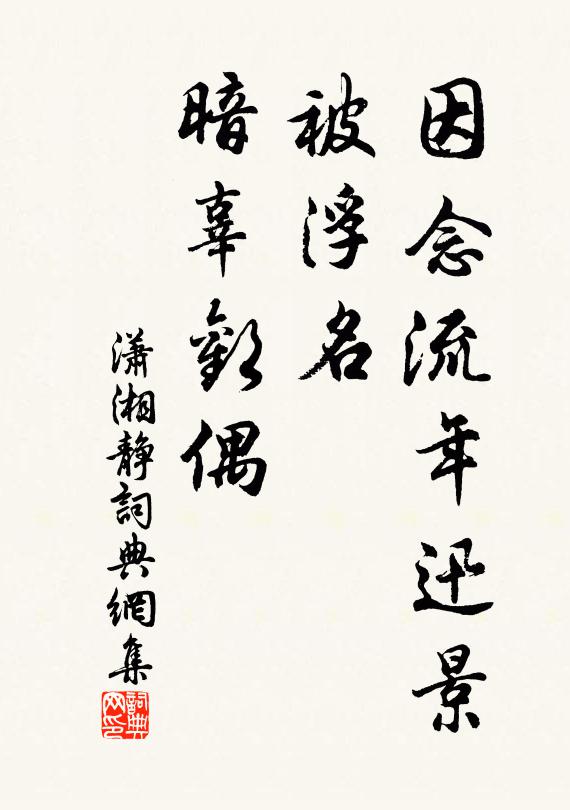 因念流年迅景
被浮名
暗辜歡偶
瀟湘靜詞典網集
詞典網印